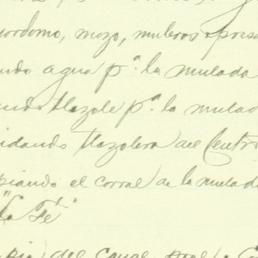 ordomo, mozo, muleros o perso
ndo agua pª. la mulada
ando tlazole pª. la mulad
idando tlazolera del Centr
piando el corral de la mulad
"La Fé"
del Canal